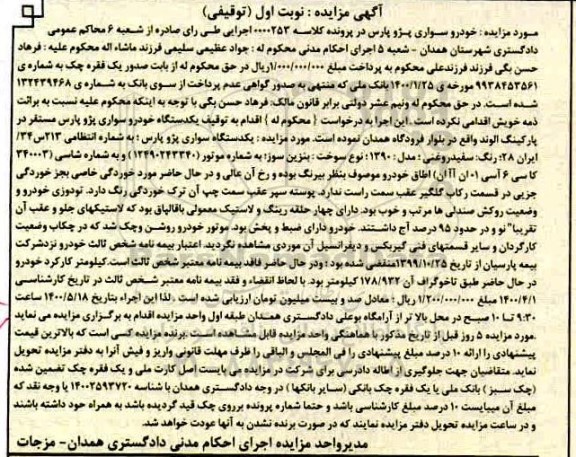 آگهی مزایده : نوبت اول (توقیفی)
مورد مزایده : خودرو سواری پژو پارس در پرونده کلاسه ۰۰۰۰۲۵۳ اجرایی طی رای صادره از شعبه ۶ محاکم عمومی
دادگستری شهرستان همدان - شعبه ۵ اجرای احکام مدنی محکوم له : جواد عظیمی سلیمی فرزند ماشاء اله محکوم علیه : فرهاد
حسن بگی فرزند فرزندعلی محکوم به پرداخت مبلغ ۱/۰۰۰/۰۰۰/۰۰۰ریال در حق محکوم له از بابت صدور یک فقره چک به شماره ی
۹۹۳۸۴۵۳۵۶۱ مورخه ی ۱۴۰۰/۱/۲۵ بانک ملی که منتهی به صدور گواهی عدم پرداخت از سوی بانک به شماره ی ۱۳۲۴۳۹۴۶۸
شده است. در حق محکوم له ونیم عشر دولتی برابر قانون مالک: فرهاد حسن بگی با توجه به اینکه محکوم علیه نسبت به برائت
ذمه خویش اقدامی نکرده است. این اجرا به درخواست { محکوم له } اقدام به توقیف یکدستگاه خودرو سواری پژو پارس مستقر در
پارکینگ الوند واقع در بلوار فرودگاه همدان نموده است. مورد مزایده : یکدستگاه سواری پژو پارس : به شماره انتظامی ۲۱۳س۳۴/
ایران ۲۸؛ رنگ: سفیدروغنی : مدل : ۱۳۹۰؛ نوع سوخت : بنزین سوز؛ به شماره موتور (۱۲۴۹۰۲۴۳۳۴۰) و به شماره شاسی (۳۴۰۰۰۳
کا سی ۶ آسی ۰۱ ان آآ ان) اطاق خودرو موصوف بنظر بیرنگ بوده و رخ آن عالی و در حال حاضر مورد خوردگی خاصی بجز خوردگی
جزیی در قسمت رکاب گلگیر عقب سمت راست ندارد. پوسته سپر عقب سمت چپ آن ترک خوردگی رنگ دارد. تودوزی خودرو و
وضعیت روکش صندلی ها مرتب و خوب بود. دارای چهار حلقه رینگ و لاستیک معمولی باقالپاق بود که لاستیکهای جلو و عقب آن
تقریبا" نو و در حدود ۹۵ درصد آج داشتند. خودرو دارای ضبط و پخش بود. موتور خودرو روشن وچک شد که در چکاب وضعیت
کارگردان و سایر قسمتهای فنی گیربکس و دیفرانسیل آن موردی مشاهده نگردید. اعتبار بیمه نامه شخص ثالث خودرو نزدشرکت
بیمه پارسیان از تاریخ ۱۳۹۹/۱۰/۲۵منقضی شده بود ؛ ودر حال حاضر فاقد بیمه نامه معتبر شخص ثالث است. کیلومتر کارکرد خودرو
در حال حاضر طبق تاخوگراف آن ۱۷۸/۹۳۲ کیلومتر بود. با لحاظ انتفقاء و فقد بیمه نامه معتبر شخص ثالث در تاریخ کارشناسی
۱۴۰۰/۴/۱ مبلغ ۱/۲۰۰/۰۰۰/۰۰۰ ریال : معادل صد و بیست میلیون تومان ارزیابی شده است . لذا این اجراء بتاریخ ۱۴۰۰/۵/۱۸ ساعت
۹:۳۰ تا ۱۰ صبح در محل بالا تر از آرامگاه بوعلی دادگستری همدان طبقه اول واحد مزایده اقدام به برگزاری مزایده می نماید
.مورد مزایده ۵ روز قبل از تاریخ مذکور با هماهنگی واحد مزایده قابل مشاهده است .برنده مزایده کسی است که بالاترین قیمت
پیشنهادی را ارائه ۱۰ درصد مبلغ پیشنهادی را فی المجلس و الباقی را ظرف مهلت قانونی واریز و فیش آنرا به دفتر مزایده تحویل
نماید. متقاضیان جهت جلوگیری از اطاله دادرسی برای شرکت در مزایده می بایست اصل کارت ملی و یک فقره چک تضمین شده
(چک سبز) بانک ملی یا یک فقره چک بانکی (سایر بانکها ) در وجه دادگستری همدان با شناسه ۱۴۰۰۲۵۹۳۷۲۰ یا وجه نقد که
مبلغ آن میبایست ۱۰ درصد مبلغ کارشناسی باشد و حتما شماره پرونده برروی چک قید گردیده باشد به همراه خود داشته باشند
و در ساعت مزایده تحویل دفتر مزایده نمایند که در صورت برنده نشدن به آنها عودت خواهد شد.
مدیرواحد مزایده اجرای احکام مدنی دادگستری همدان- مزجات